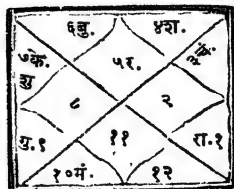 ६बु. ४श.
७के. ५र. ३
शु
८ २
गु.९ ११ रा.१
१०मं. १२